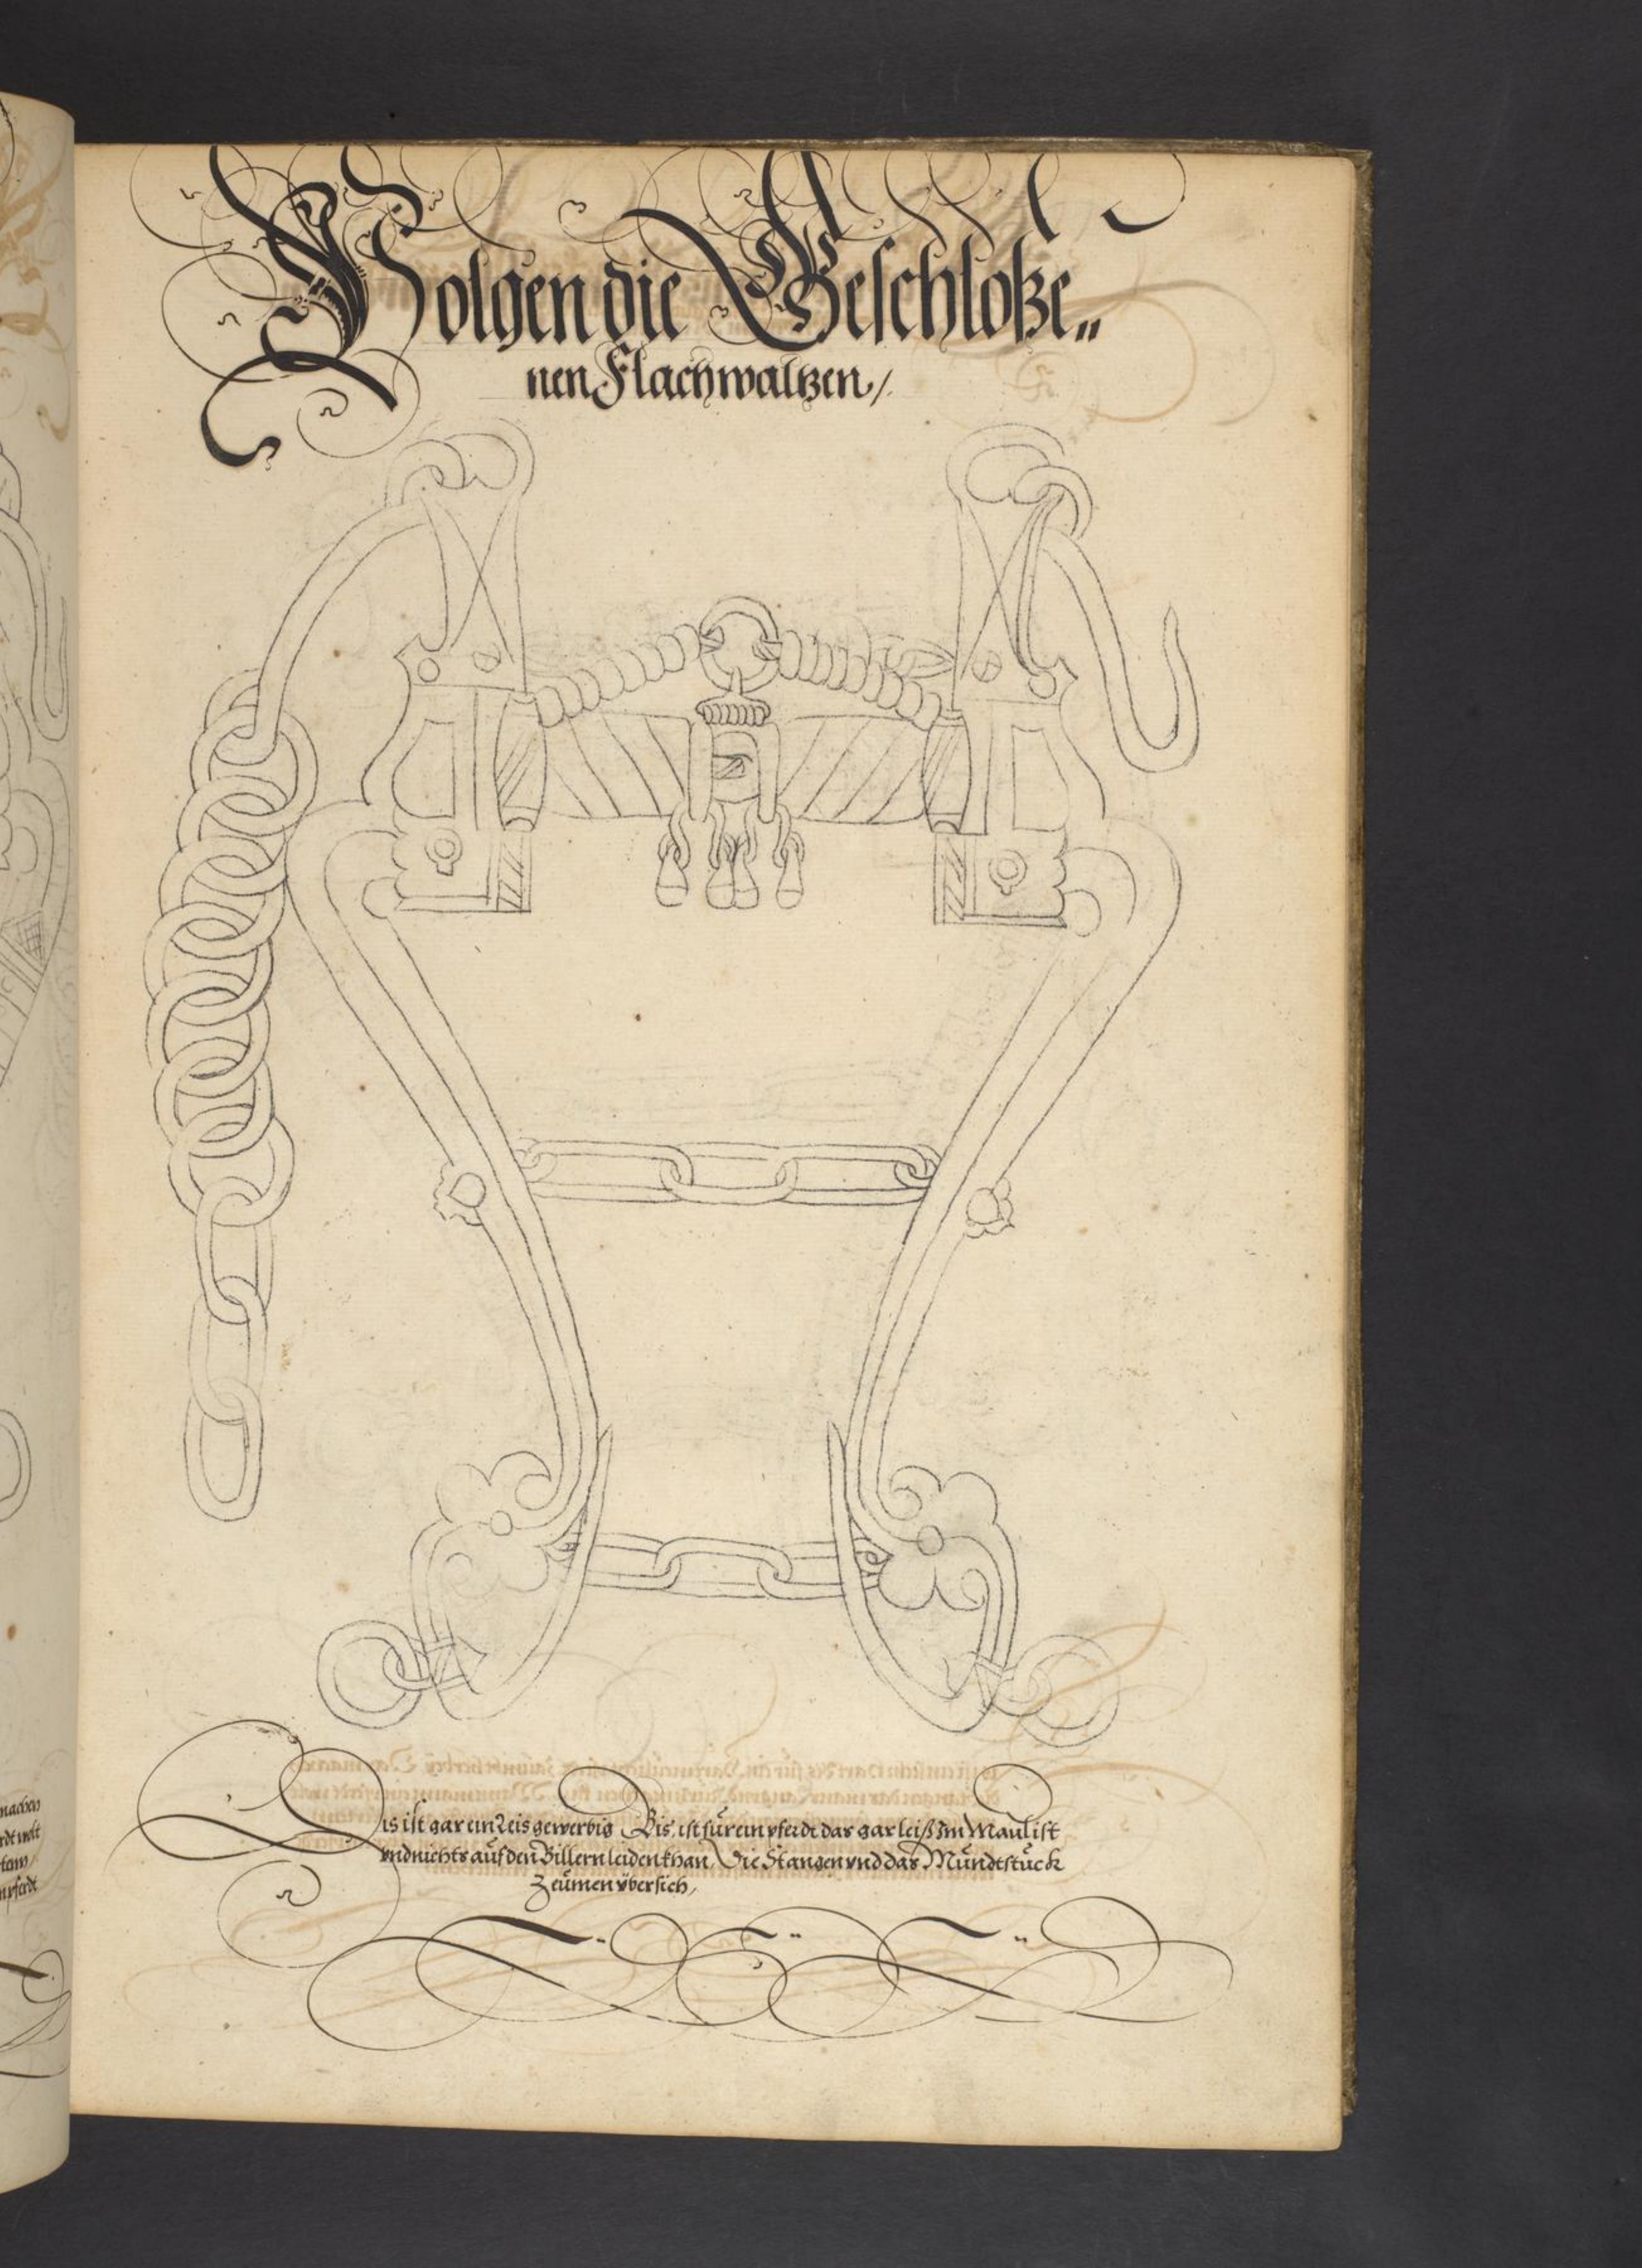 Volgen die Geschloße„
nen Flachwaltzen /
Dis ist gar ein Leis gewerbig Bis, ist für ein pferdt das gar leiß Im Maul ist
vnd nichts auf den Billern leiden khan, Die Stangen vnd das Mundtstuck
Zeumen vbersich,
machen
rdt